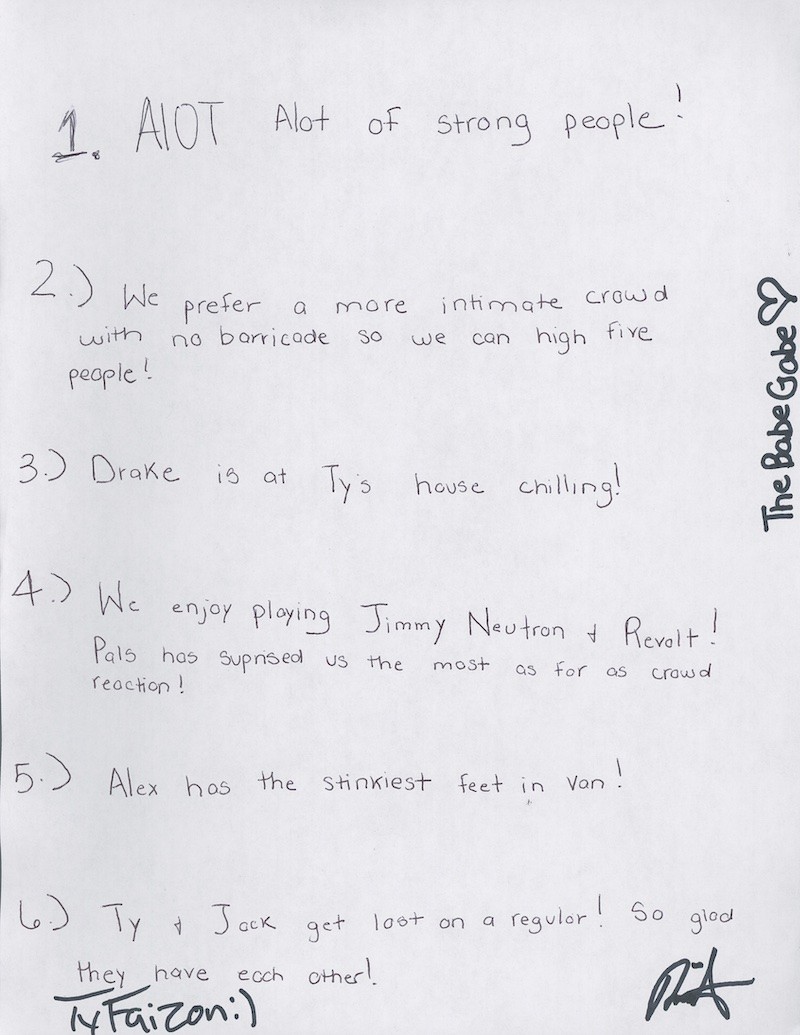 1. AlOT Alot of strong people!
2.) We prefer a more intimate crowd
with no barricade so we can high five
people!
3.) Drake is at Ty's house chilling!
4.) We enjoy playing Jimmy Neutron & Revolt!
Pals has suprised us the most as for as crowd
reaction!
5.) Alex has the stinkiest feet in van!
6.) Ty & Jack get lost on a regular! So glad
they have each other!
Ty Faizon:)
The Babe Gabe♡